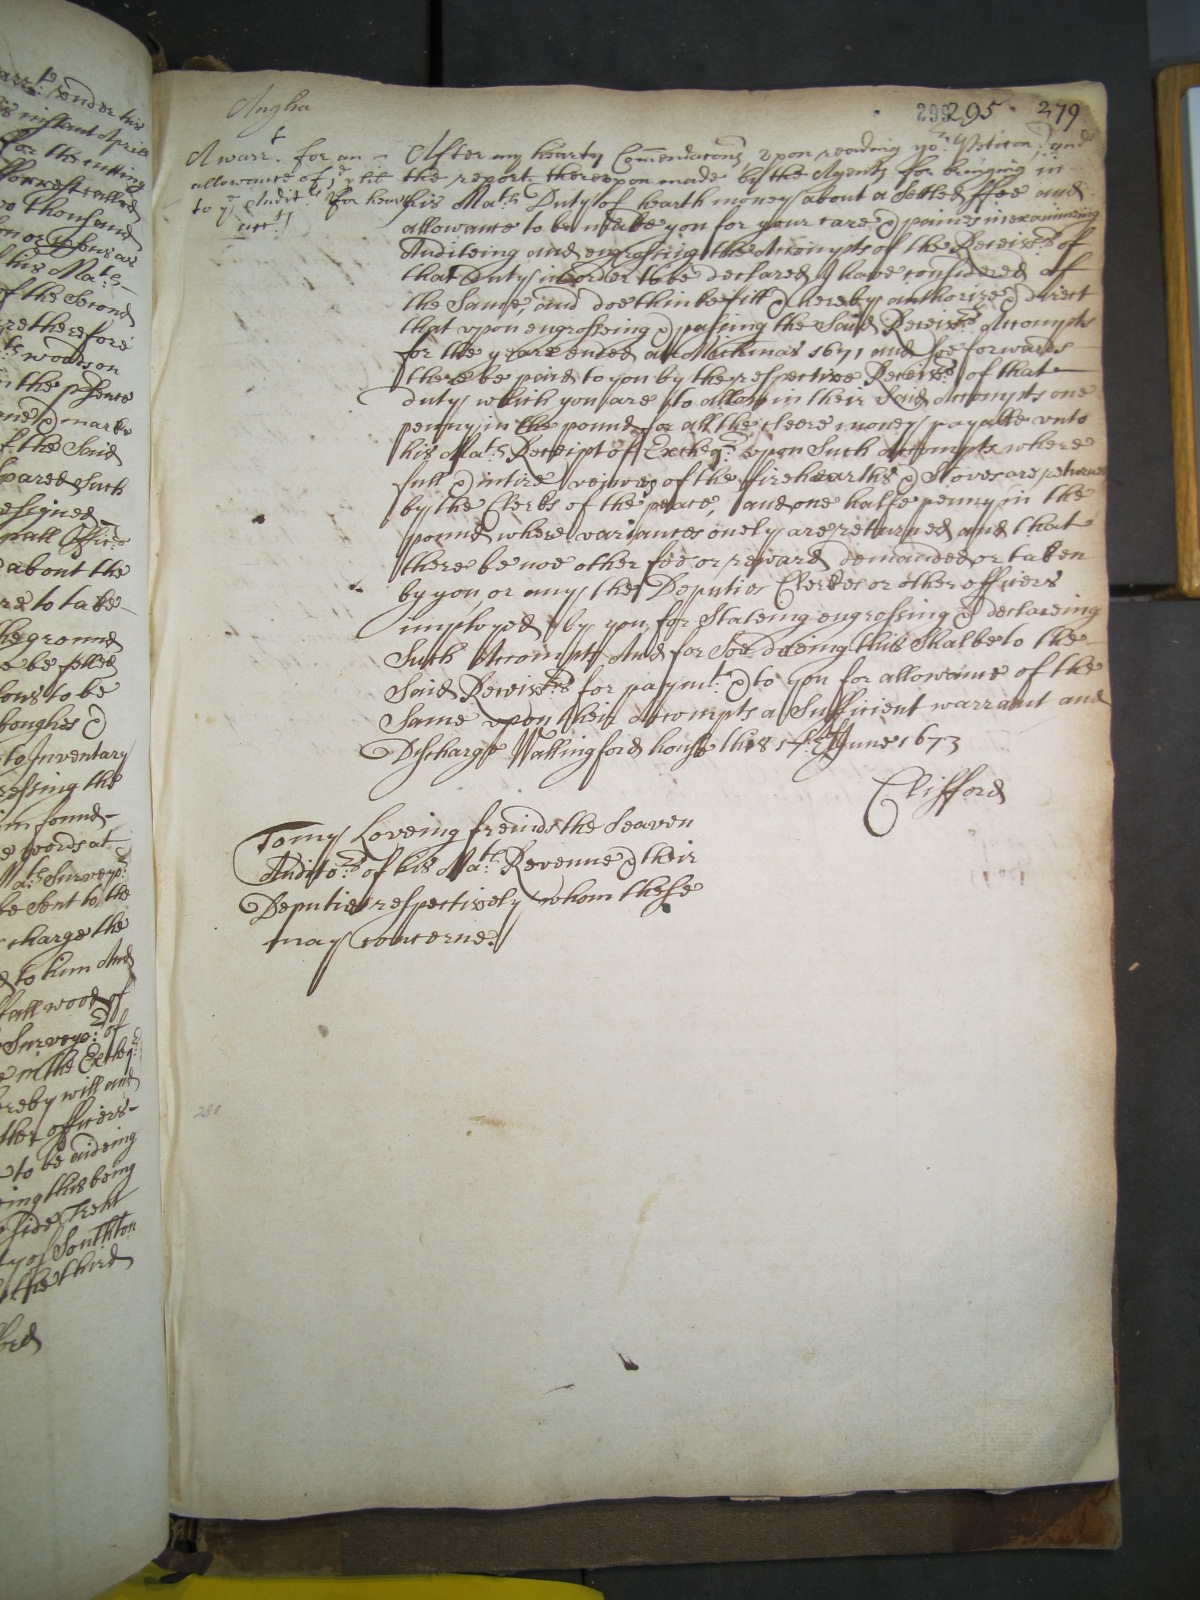 Anglia
299 295 279
A warr.t for an
allowance of
to ye Audit.rs for hear
acc.ts
After my hearty Comendacons, Upon reading yo.r Peticon, and
the report thereupon made by the Agents for bringing in
his Ma.ts Duty of hearth money about a setled ffee and
allowance to be made you for your care & paines in examineing
Auditeing and engrossing the Accompts of the Receiv.rs of
that Duty in order to be declared, I have considered of
the Same, and doe thinke fitt & hereby authorize & direct
that upon engrosseing & passing the Said Receiv.rs Accompts
for the yeare ended at Michmas 1671 and Soe forwards
there be paid to you by the respective Receiv.rs of that
duty which you are to allow in their Said Accompts one
penny in the pound for all the cleere money payable unto
his Ma.ts Receipt of Excheq.r upon Such Accompts where
full & intire veiwes of the firehearths & Stoves are returned
by the Clerks of the peace, and one halfe penny in the
pound where variances onely are returned and that
there be noe other fee or reward demanded or taken
by you or any the Deputies Clerkes or other officers
imployed by you for Stateing engrossing & declareing
Such Accompts And for Soe doeing this Shalbe to the
Said Receiv.rs for paym.t & to you for allowance of the
Same upon their Accompts a Sufficient warrant and
Discharge Wallingford house this June 1673
Clifford
To my Loveing freinds the Seaven
Audito.rs of his Ma.ts Revenue & their
Deputies respectively whom these
may concerne.
281
warr.t under his
instant Aprill
for the cutting
fforrest called
two thousand
his Ma.ts
of the Second
are therefore
woods on
in the psence
& marke
of the Said
pared Such
esigned
about the
are to take
the ground
be felled
to be
boughes &
to Inventary
ressing the
found
words at
Ma.ts Survey.r
be Sent to the
charge the
to him And
Fall wood of
Surveyo.r of
in the Excheq.r
hereby will and
other officers
to be aideing
ing this being
side Trent
ty of Southton
the third